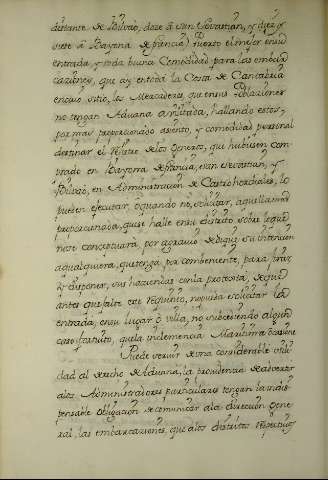 distante de Bilbao, doze à san Sevastian, y diez y
siete à Bayona de francia, Puerto el mejor en su
entrada, y toda buena Comodidad para las embar
caziones, que ay en toda la Costa de Cantabria
en cuio sitio, los Mercaderes, que en sus Poblaziones
no tengan Aduana havilitada, hallando estos y
por mas proporcionado asiento, y comodidad personal
destinar el de los Generos, que hubiesen com
prado en Bayona de francia, en san Sevastian, y
Bilbao, en Administracion de Castro hordiales, lo
pueden ejecutar, ò quando no, solicitar, aquella mas
proporcionada, que se halle en su distrito sobre lo que
nose conceptuarà, por agravio de dirigir su intencion
a qualquiera, que tenga por combeniente, para traer
y disponer, sus haziendas con la protexta, de que
antes que falte este requisito, no pueda solicitar la
entrada, en su lugar ò villa, no subcediendo algun
caso fortuito, que la inclemencia Maritima ocasione
Puede servir de una considerable utili
dad al derecho de Aduana, la providencia de advertir
alos Administradores particulares tengan la indis
pensable obligacion de comunicar ala direccion gene
ral, las embarcaziones, que alos distritos respectivos